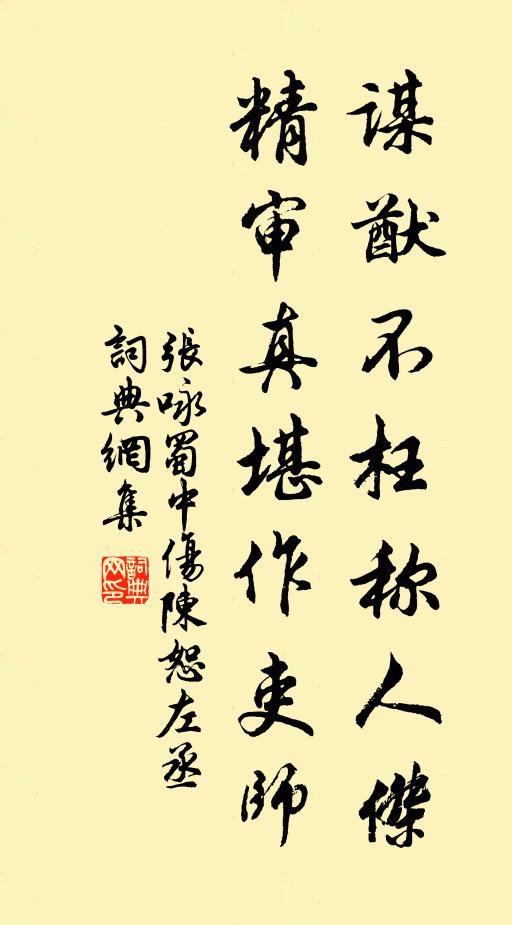 謀猷不枉称人傑
精审真堪作吏師
張咏蜀中傷陳恕左丞
詞典網集
詞典网印